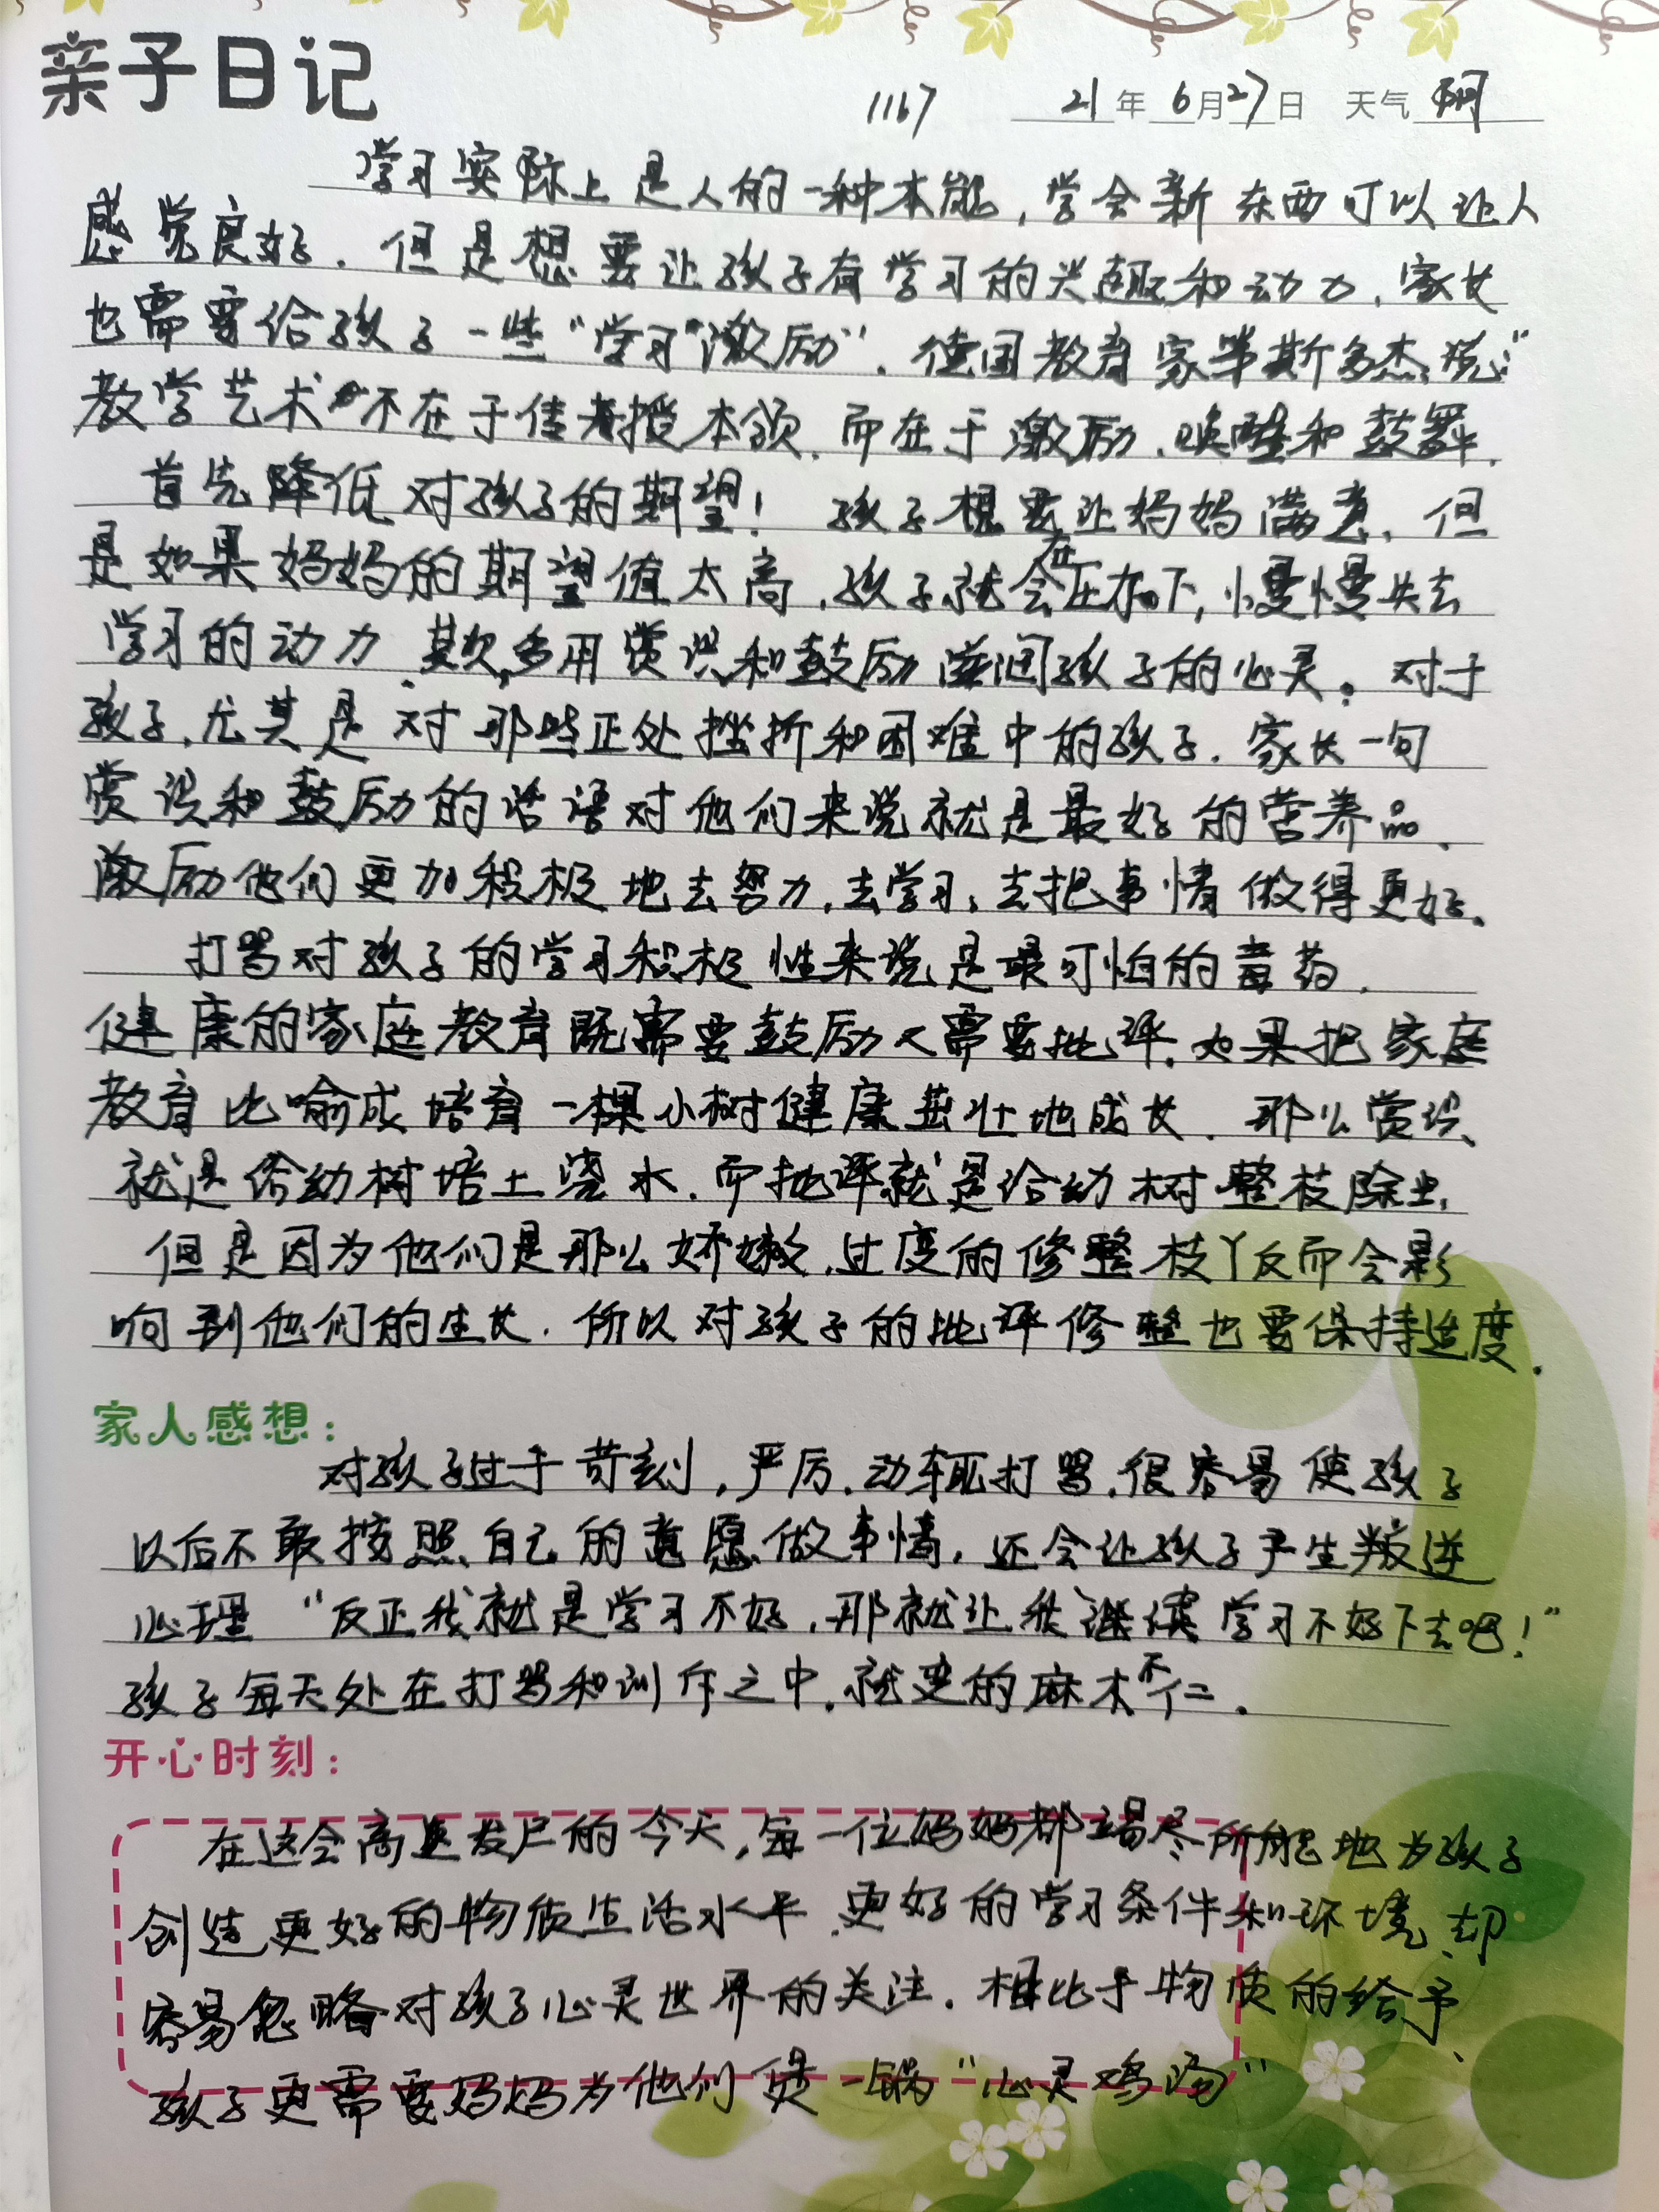 亲子日记
1167 21年6月27日 天气 阴
学习实际上是人的一种本能,学会新东西可以让人
感觉良好.但是想要让孩子有学习的兴趣和动力,家长
也需要给孩子一些“学习”激励”.德国教育家第斯多杰说:“
教学艺术不在于传授本领,而在于激励、唤醒和鼓舞.
首先降低对孩子的期望!孩子想要让妈妈满意,但
是如果妈妈的期望值太高,孩子就会在压力下,慢慢失去
学习的动力.其次,多用赏识和鼓励滋润孩子的心灵。对于
孩子,尤其是对那些正处挫折和困难中的孩子.家长一句
赏识和鼓励的话语对他们来说就是最好的营养品.
激励他们更加积极地去努力,去学习,去把事情做得更好.
打骂对孩子的学习积极性来说是最可怕的毒药.
健康的家庭教育既需要鼓励又需要批评.如果把家庭
教育比喻成培育一棵小树健康茁壮地成长.那么赏识
就是给幼树培土浇水.而批评就是给幼树整枝除虫,
但是因为他们是那么娇嫩,过度的修整枝丫反而会影
响到他们的生长.所以对孩子的批评修整也要保持适度.
家人感想:
对孩子过于苛刻,严厉.动辄打骂.很容易使孩子
以后不敢按照自己的意愿做事情,还会让孩子产生叛逆
心理“反正我就是学习不好,那就让我继续学习不好下去吧!”
孩子每天处在打骂和训斥之中.就变的麻木不仁.
开心时刻:
在这会高速发展的今天,每一位妈妈都竭尽所能地为孩子
创造更好的物质生活水平.更好的学习条件和环境.却
容易忽略对孩子心灵世界的关注.相比于物质的给予、
孩子更需要妈妈为他们煲一锅“心灵鸡汤”